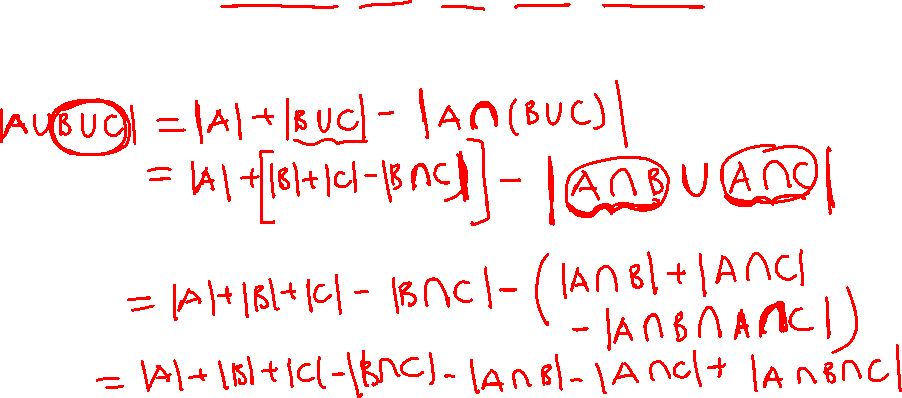 |A∪B∪C| = |A| + |B∪C| - |A∩(B∪C)|
= |A| + [|B|+|C|-|B∩C|] - |A∩B ∪ A∩C|
= |A|+|B|+|C| - |B∩C| - (|A∩B| + |A∩C|
- |A∩B∩A∩C|)
= |A|+|B|+|C|-|B∩C|-|A∩B|-|A∩C|+ |A∩B∩C|